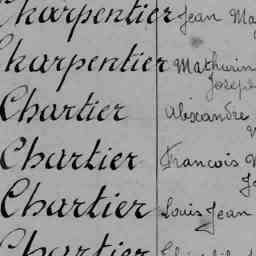 Charpentier Jean
Charpentier Mathurin
Joseph
Chartier Alexandre
Chartier Francois
Chartier Louis Jean
Chartier